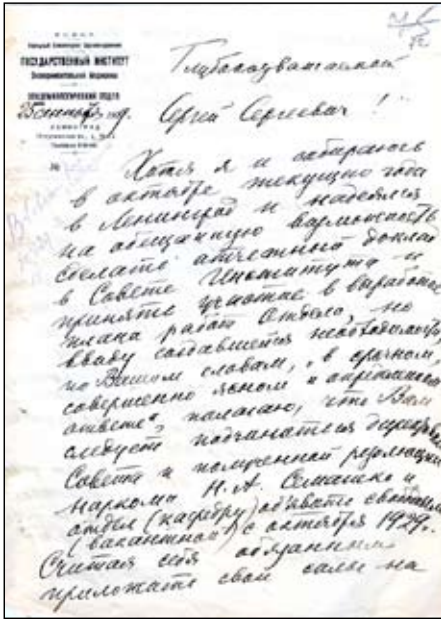 ГОСУДАРСТВЕННЫЙ ИНСТИТУТ
Экспериментальной Медицины
ЭПИДЕМИОЛОГИЧЕСКИЙ ОТДЕЛ
25 сентября 29.
ЛЕНИНГРАД
№
Глубокоуважаемый
Сергей Сергеевич!
Хотя я и собираюсь
в октябре текущего года
в Ленинград и надеялся
на обещанную возможность
сделать отчетный доклад
в Совете Института и
принять участие в выработке
плана работ Отдела, но
ввиду создавшейся необходимости,
по Вашим словам, „в срочном,
совершенно ясном и
ответе“, полагаю, что Вам
следует подчиниться
Совета и полученной резолюции
Наркома Н.А. Семашко и
отдел (кафедру) об'явить свободным
(вакантной) с октября 1929.
Считая себя обязанным
приложить свои силы на